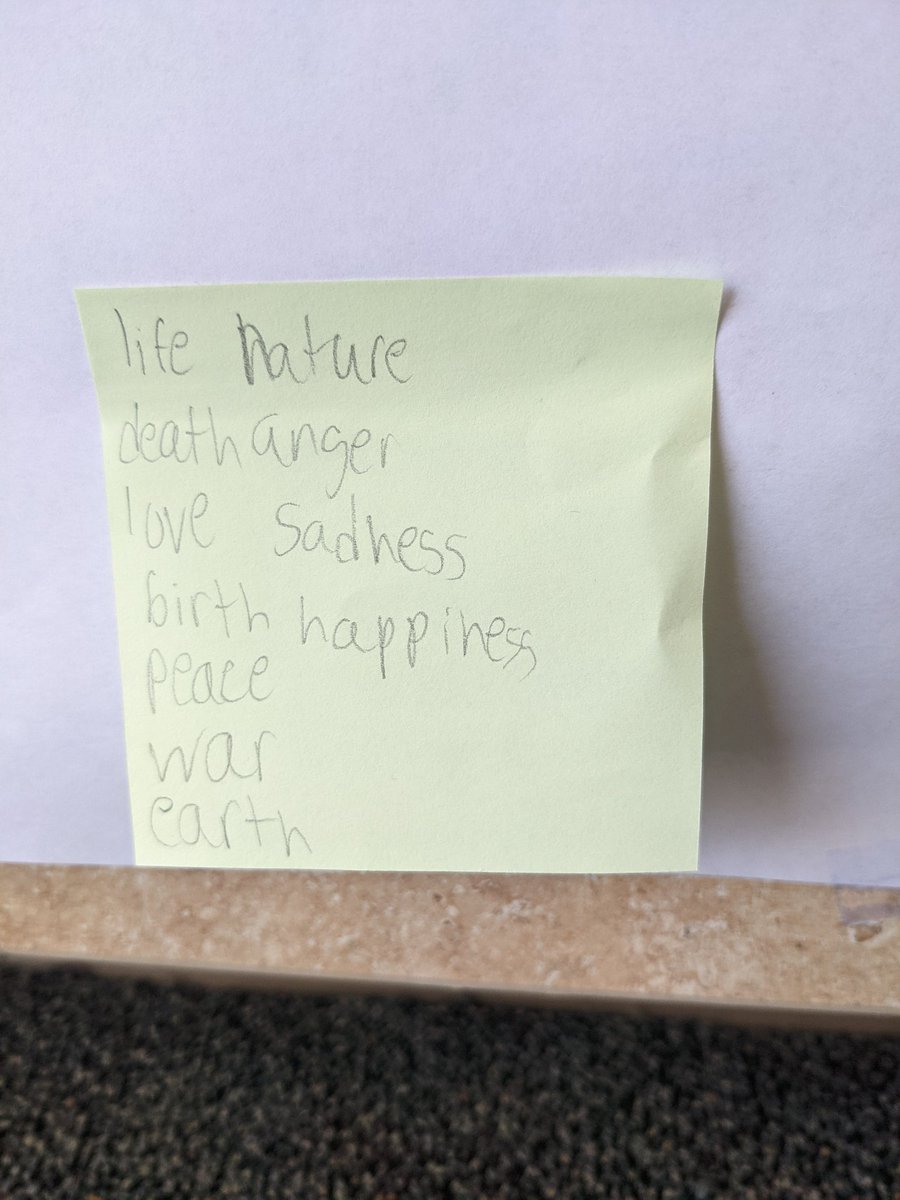 life nature
death anger
love sadness
birth happiness
peace
war
earth